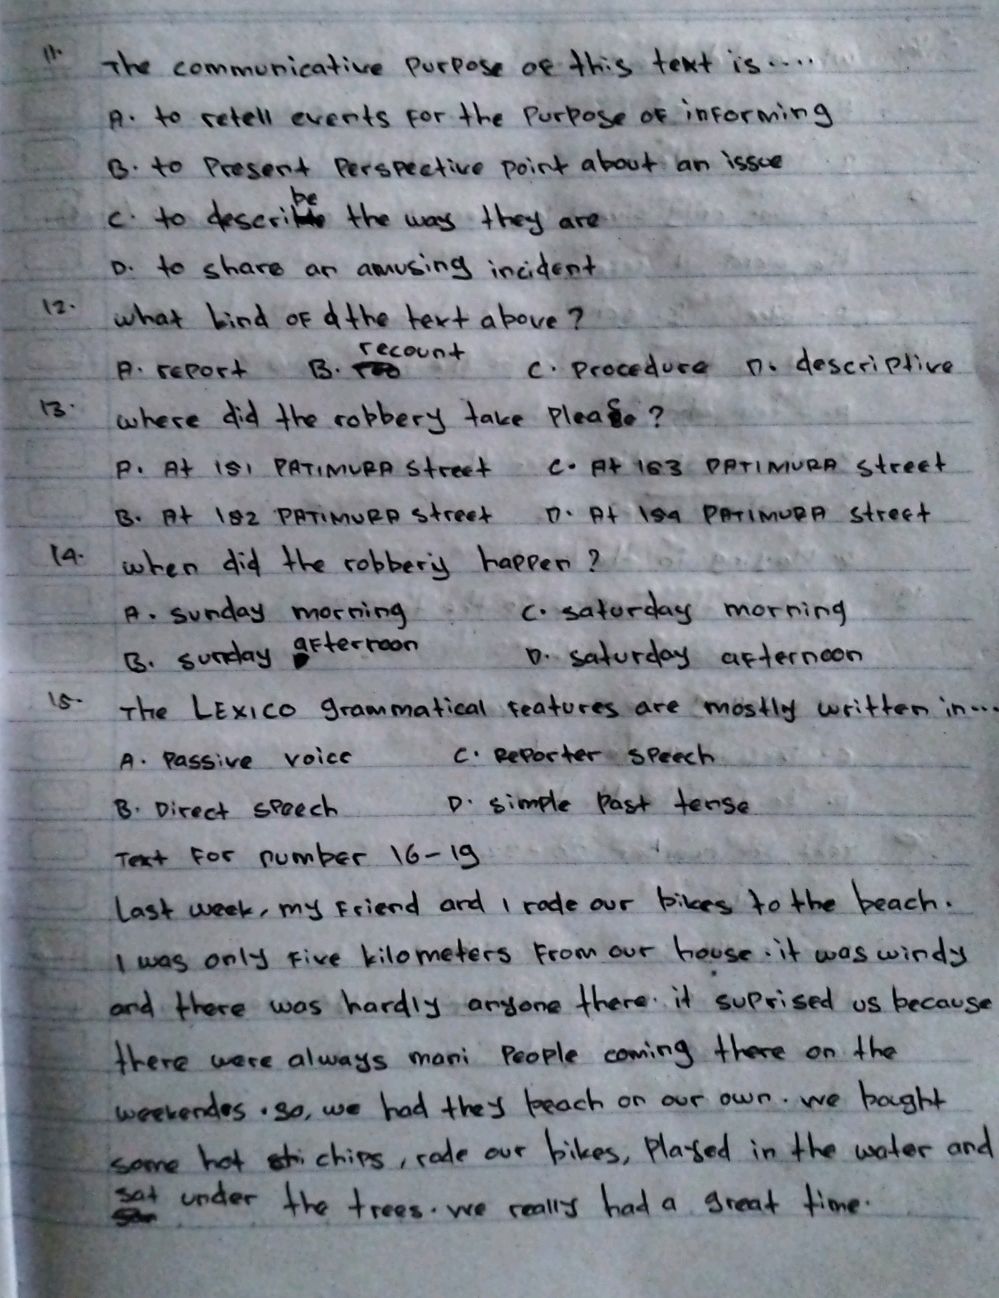 11. The communicative Purpose of this text is....
A. to retell events for the Purpose of informing
B. to Present Perspective point about an issue
C. to describe the way they are
D. to share an amusing incident
12. what kind of the text above?
A. report B. recount C. Procedure D. descriptive
13. where did the robbery take Please?
A. At 181 PATIMURA Street C. At 183 PATIMURA Street
B. At 182 PATIMURA Street D. At 184 PATIMURA Street
14. when did the robbery happen?
A. sunday morning C. saturday morning
B. sunday afternoon D. saturday afternoon
15. The LEXICO grammatical features are mostly written in...
A. Passive voice C. Reporter speech
B. Direct speech D. simple Past tense
Text For number 16-19
Last week, my Friend and I rode our bikes to the beach.
I was only Five kilometers From our house. it was windy
and there was hardly anyone there. it suprised us because
there were always mani People coming there on the
weekendes. so, we had they beach on our own. we bought
some hot chips, rode our bikes, Played in the water and
sat under the trees. we really had a great time.